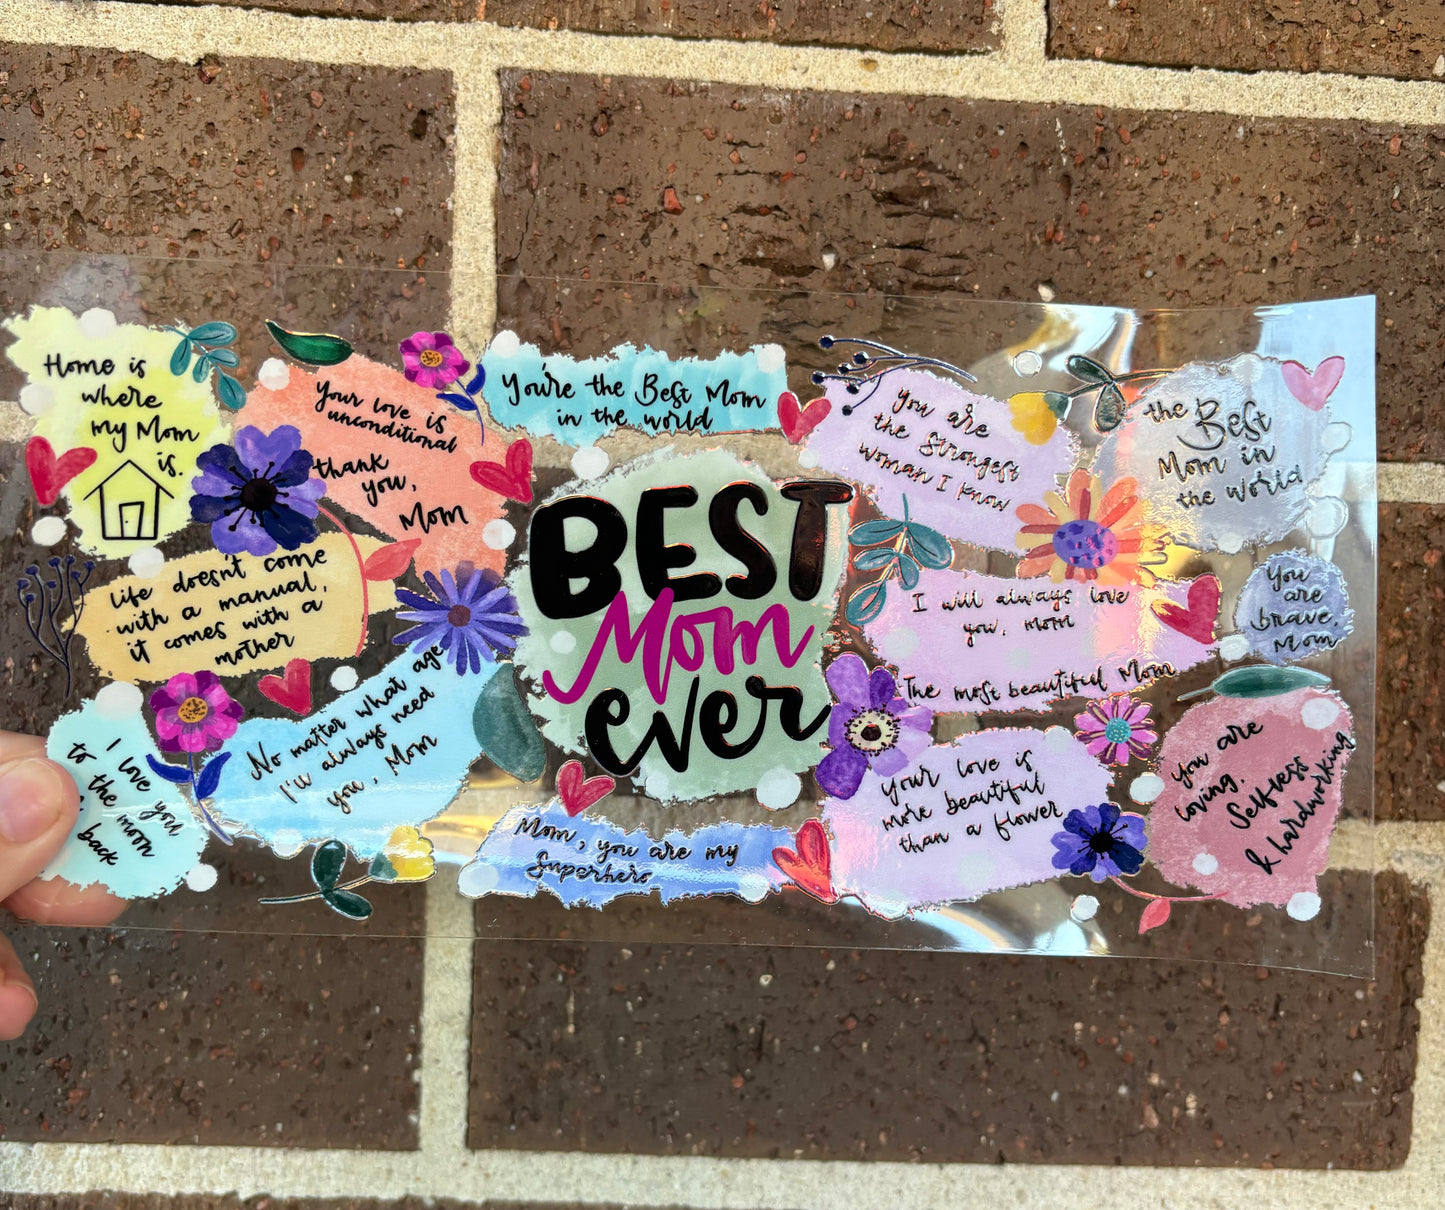 Home is
where
my Mom
is.
Your love is
unconditional
thank
you,
Mom
You're the Best Mom
in the world
You are
the Strongest
woman I know
the Best
Mom in
the world
life doesn't come
with a manual,
it comes with a
mother
BEST
Mom
ever
I will always love
you, mom
The most beautiful Mom
You
are
brave,
Mom
I love you
to the moon
& back
No matter what age
I'll always need
you, Mom
Mom, you are my
Superhero
Your love is
more beautiful
than a flower
You are
loving,
Selfless
& hardworking